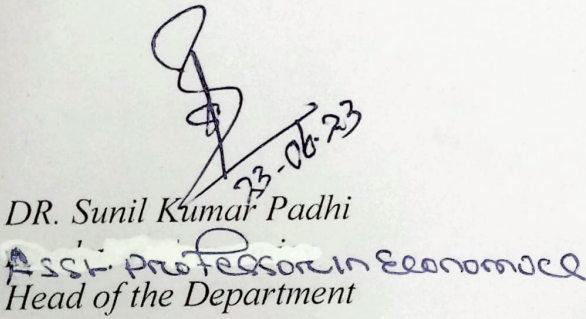 23-06-23
DR. Sunil Kumar Padhi
Asst. Professor in Economics
Head of the Department